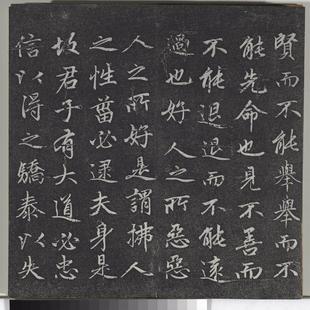 賢而不能舉舉而不
能先命也見不善而
不能退退而不能遠
過也好人之所惡惡
人之所好是謂拂人
之性菑必逮夫身是
故君子有大道必忠
信以得之驕泰以失